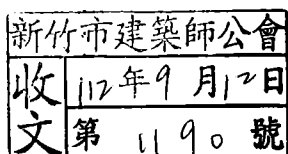 新竹市建築師公會
收文
112年9月12日
第1190號